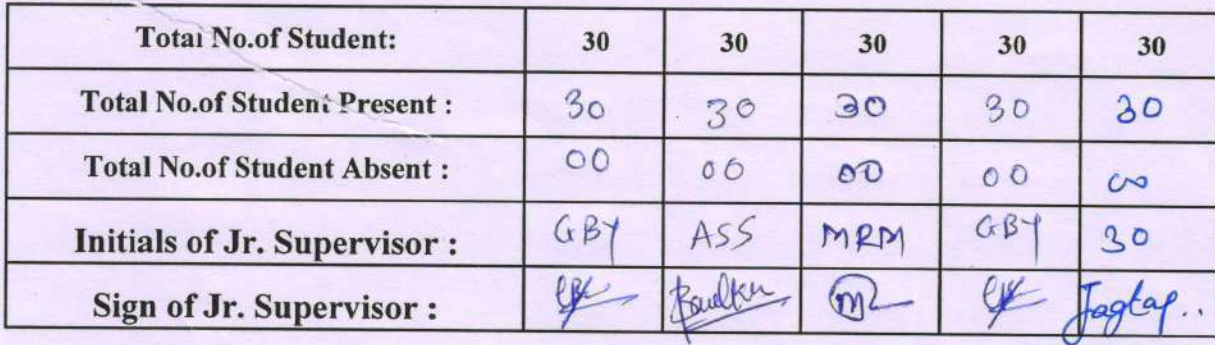 Total No.of Student: 30 30 30 30 30
Total No.of Student Present : 30 30 30 30 30
Total No.of Student Absent : 00 00 00 00 00
Initials of Jr. Supervisor : GBY ASS MRM GBY 30
Sign of Jr. Supervisor : Jagtap..